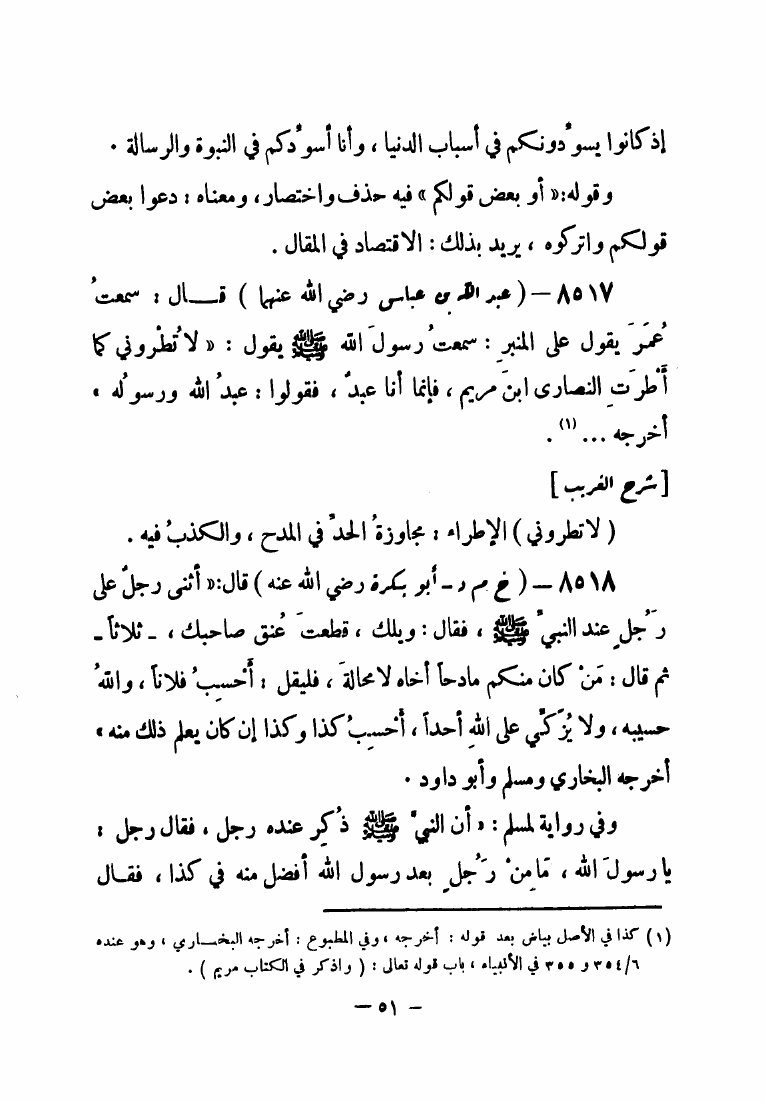 إذ كانوا يسوِّدونكم في أسباب الدنيا ، وأنا أسوِّدكم في النبوة والرسالة .
وقوله:« أو بعض قولكم » فيه حذف واختصار، ومعناه : دعوا بعض
قولكم واتركوه ، يريد بذلك : الاقتصاد في المقال .
٨٥١٧ – ( عبد الله بن عباس رضي الله عنهما ) قــال : سمعتُ
عُمَرَ يقول على المنبرِ : سمعتُ رسولَ الله ﷺ يقول : « لا تُطْروني كما
أَطْرَتِ النصارى ابنَ مريم ، فإنما أنا عبدٌ ، فقولوا : عبدُ الله ورسولُه »
أخرجه ... (١) .
[ شرح الغريب ]
( لا تطروني ) الإطراء : مجاوزةُ الحدِّ في المدح ، والكذبُ فيه .
٨٥١٨ – ( خ م د - أبو بكرة رضي الله عنه ) قال:« أثنى رجلٌ على
رَجُلٍ عند النبيِّ ﷺ ، فقال : ويلك ، قطعتَ عُنق صاحبك ، - ثلاثاً -
ثم قال : مَنْ كان منكم مادحاً أخاه لا محالةَ ، فليقل : أَحْسِبُ فلاناً ، واللهُ
حسيبه ، ولا يُزَكِّي على اللهِ أحداً ، أَحْسِبُ كذا وكذا إن كان يعلم ذلك منه »
أخرجه البخاري ومسلم وأبو داود .
وفي رواية لمسلم : « أن النبيَّ ﷺ ذُكِر عنده رجل ، فقال رجل :
يا رسولَ الله ، مَا مِنْ رَجُلٍ بعد رسول الله أفضل منه في كذا ، فقــال
(١) كذا في الأصل بياض بعد قوله : أخرجه ، وفي المطبوع : أخرجه البخــاري ، وهو عنده
٦/٣٥٤ و ٣٥٥ في الأنبياء ، باب قوله تعالى : ( واذكر في الكتاب مريم ) .
– ٥١ –